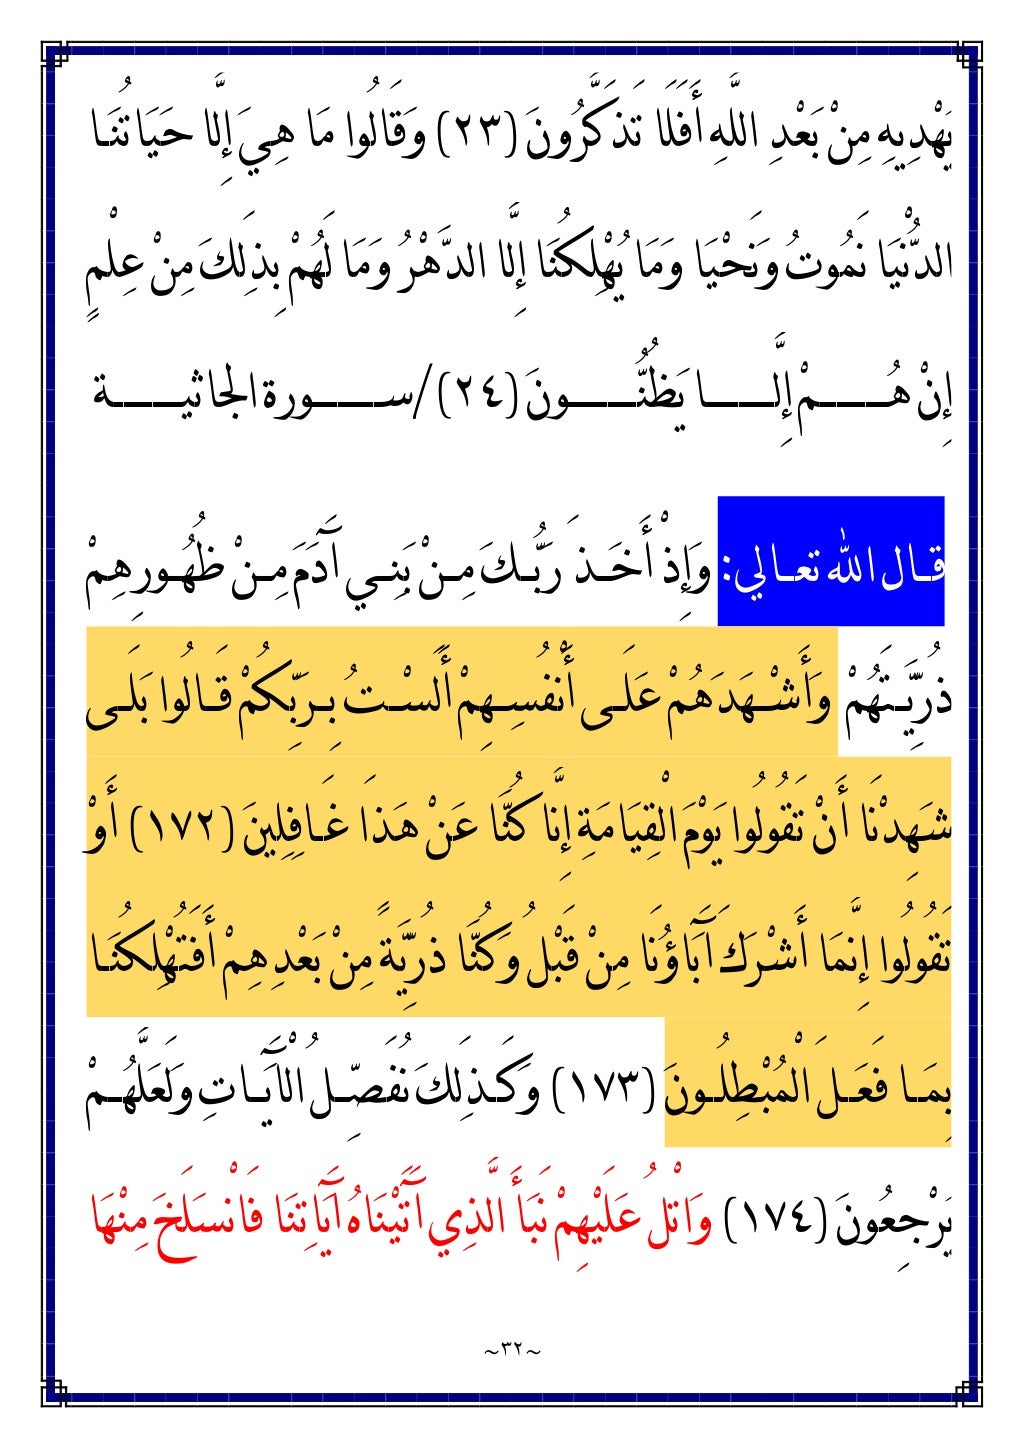 يَهْدِيهِ مِنْ بَعْدِ اللَّهِ أَفَلَا تَذَكَّرُونَ (٢٣) وَقَالُوا مَا هِيَ إِلَّا حَيَاتُنَا
الدُّنْيَا نَمُوتُ وَنَحْيَا وَمَا يُهْلِكُنَا إِلَّا الدَّهْرُ وَمَا لَهُمْ بِذَلِكَ مِنْ عِلْمٍ
إِنْ هُمْ إِلَّا يَظُنُّونَ (٢٤) /سورة الجاثية
قال الله تعالي: وَإِذْ أَخَذَ رَبُّكَ مِنْ بَنِي آَدَمَ مِنْ ظُهُورِهِمْ
ذُرِّيَّتَهُمْ وَأَشْهَدَهُمْ عَلَى أَنْفُسِهِمْ أَلَسْتُ بِرَبِّكُمْ قَالُوا بَلَى
شَهِدْنَا أَنْ تَقُولُوا يَوْمَ الْقِيَامَةِ إِنَّا كُنَّا عَنْ هَذَا غَافِلِينَ (١٧٢) أَوْ
تَقُولُوا إِنَّمَا أَشْرَكَ آَبَاؤُنَا مِنْ قَبْلُ وَكُنَّا ذُرِّيَّةً مِنْ بَعْدِهِمْ أَفَتُهْلِكُنَا
بِمَا فَعَلَ الْمُبْطِلُونَ (١٧٣) وَكَذَلِكَ نُفَصِّلُ الْآَيَاتِ وَلَعَلَّهُمْ
يَرْجِعُونَ (١٧٤) وَاتْلُ عَلَيْهِمْ نَبَأَ الَّذِي آَتَيْنَاهُ آَيَاتِنَا فَانْسَلَخَ مِنْهَا
~٣٢~